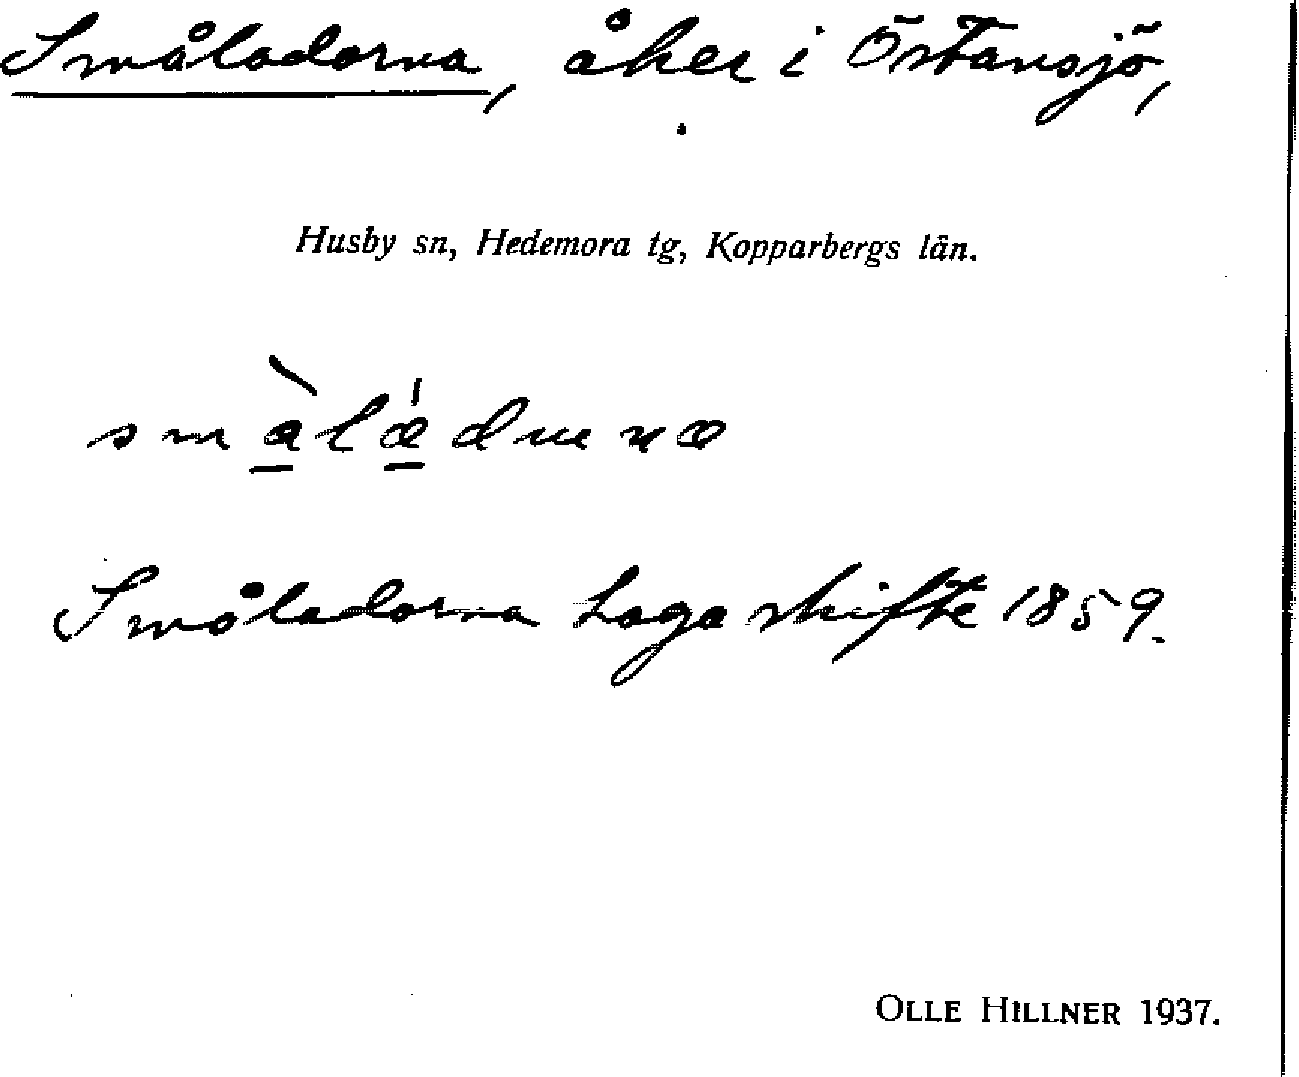 Småladorna, åker i Östansjö,
Husby sn, Hedemora tg, Kopparbergs län.
Småladorna Laga skifte 1859.
OLLE HILLNER 1937.